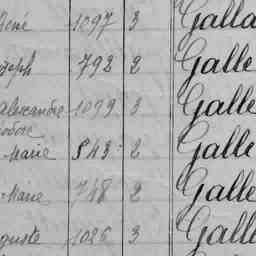 René 1097 3 Galla
Joseph 792 2 Galle
Alexandre 1099 3 Galle
Marie 843 2 Galle
Marie 748 2 Galle
guste 1026 3 Galle